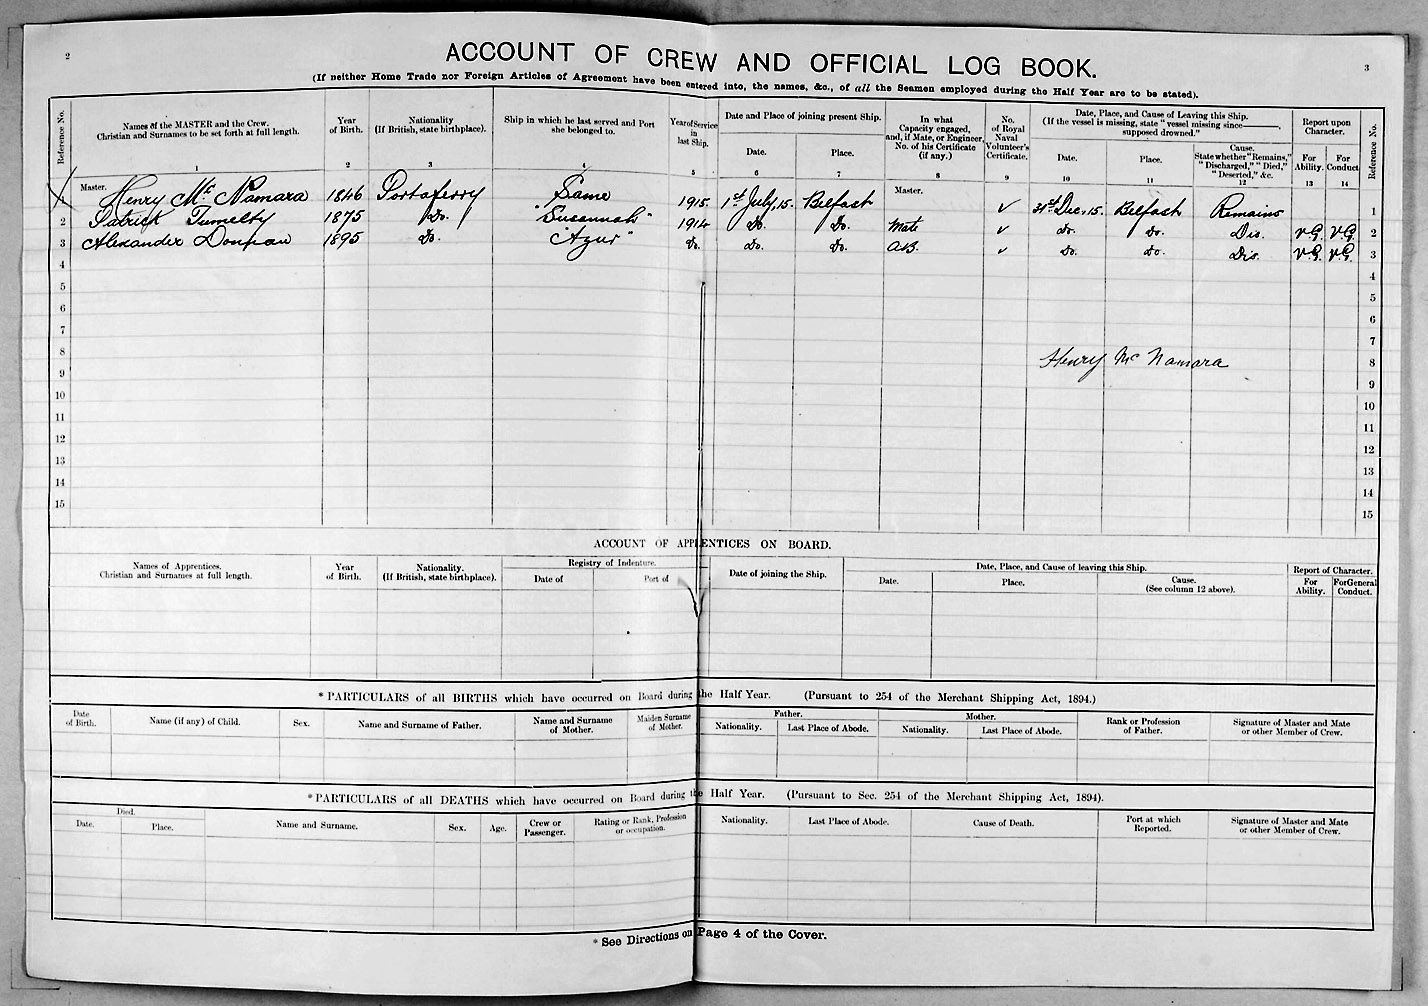 2
3
ACCOUNT OF CREW AND OFFICIAL LOG BOOK.
(If neither Home Trade nor Foreign Articles of Agreement have been entered into, the names, &c., of all the Seamen employed during the Half Year are to be stated).
Reference No. Names of the MASTER and the Crew. Christian and Surnames to be set forth at full length. Year of Birth. Nationality (If British, state birthplace). Ship in which he last served and Port she belonged to. Year of Service in last Ship. Date and Place of joining present Ship. Date. Place. In what Capacity engaged, and, if Mate, or Engineer, No. of his Certificate (if any.) No. of Royal Naval Volunteer's Certificate. Date, Place, and Cause of Leaving this Ship. (If the vessel is missing, state "vessel missing since———, supposed drowned." Date. Place. Cause. State whether "Remains," "Discharged," "Died," "Deserted," &c. Report upon Character. For Ability. For Conduct Reference No.
1 2 3 4 5 6 7 8 9 10 11 12 13 14
1 Master. Henry Mc Namara 1846 Portaferry Same 1915 1st July, 15. Belfast Master. ✓ 31st Dec. 15. Belfast Remains 1
2 Patrick Tumelty 1875 Do. "Susannah" 1914 Do. Do. Mate ✓ Do. Do. Dis. V.G. V.G. 2
3 Alexander Donnan 1895 Do. "Azur" Do. Do. Do. A.B. ✓ Do. Do. Dis. V.G. V.G. 3
4 4
5 5
6 6
7 7
8 Henry Mc Namara 8
9 9
10 10
11 11
12 12
13 13
14 14
15 15
ACCOUNT OF APPRENTICES ON BOARD.
Names of Apprentices. Christian and Surnames at full length. Year of Birth. Nationality. (If British, state birthplace). Registry of Indenture. Date of Port of Date of joining the Ship. Date, Place, and Cause of leaving this Ship. Date. Place. Cause. (See column 12 above). Report of Character. For Ability. For General Conduct.
*PARTICULARS of all BIRTHS which have occurred on Board during the Half Year. (Pursuant to 254 of the Merchant Shipping Act, 1894.)
Date of Birth. Name (if any) of Child. Sex. Name and Surname of Father. Name and Surname of Mother. Maiden Surname of Mother. Father. Nationality. Last Place of Abode. Mother. Nationality. Last Place of Abode. Rank or Profession of Father. Signature of Master and Mate or other Member of Crew.
*PARTICULARS of all DEATHS which have occurred on Board during the Half Year. (Pursuant to Sec. 254 of the Merchant Shipping Act, 1894).
Died. Date. Place. Name and Surname. Sex. Age. Crew or Passenger. Rating or Rank, Profession or occupation. Nationality. Last Place of Abode. Cause of Death. Port at which Reported. Signature of Master and Mate or other Member of Crew.
*See Directions on Page 4 of the Cover.